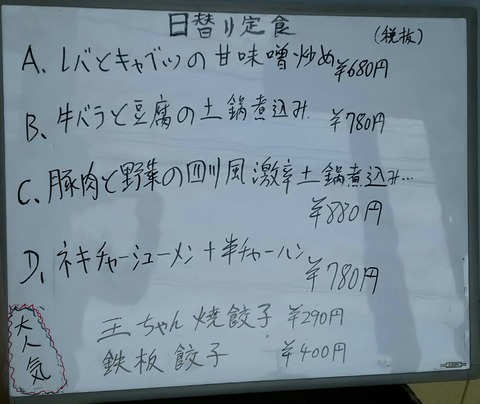 日替り定食
(税抜)
A、レバとキャベツの甘味噌炒め ¥680円
B、牛バラと豆腐の土鍋煮込み ¥780円
C、豚肉と野菜の四川風激辛土鍋煮込み…
¥880円
D、ネキチャーシューメン+半チャーハン ¥780円
大人気
王ちゃん焼餃子 ¥290円
鉄板餃子 ¥400円